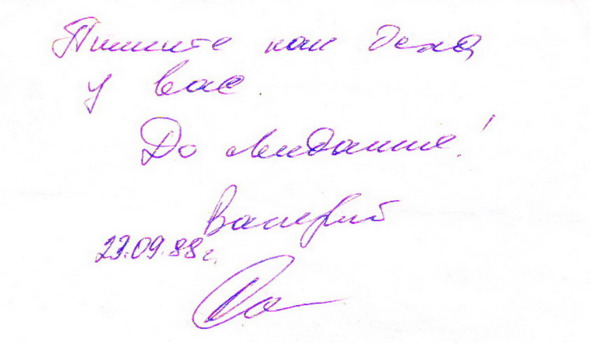 Пишите как дела
у вас.
До свидания!
Валерий
23.09.88г.